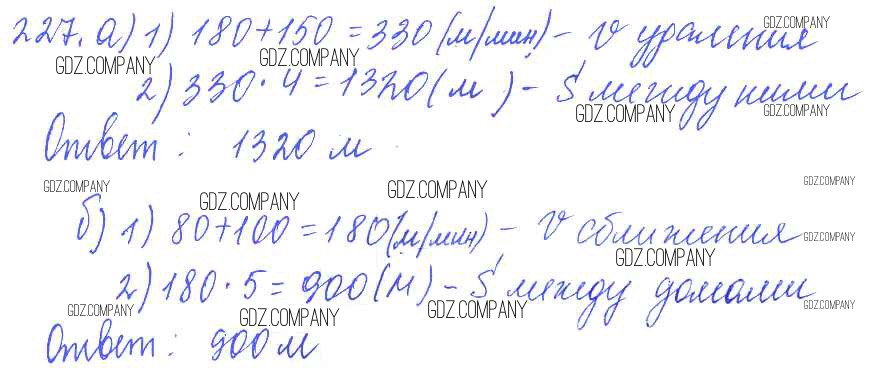 227. а) 1) 180+150=330 (м/мин) – v удаления
GDZ.COMPANY GDZ.COMPANY GDZ.COMPANY
2) 330·4=1320 (м) – S между ними
GDZ.COMPANY GDZ.COMPANY
Ответ: 1320 м
GDZ.COMPANY GDZ.COMPANY GDZ.COMPANY GDZ.COMPANY
б) 1) 80+100=180 (м/мин) – v сближения
GDZ.COMPANY GDZ.COMPANY
2) 180·5=900 (м) – S между домами
GDZ.COMPANY GDZ.COMPANY GDZ.COMPANY GDZ.COMPANY
Ответ: 900 м